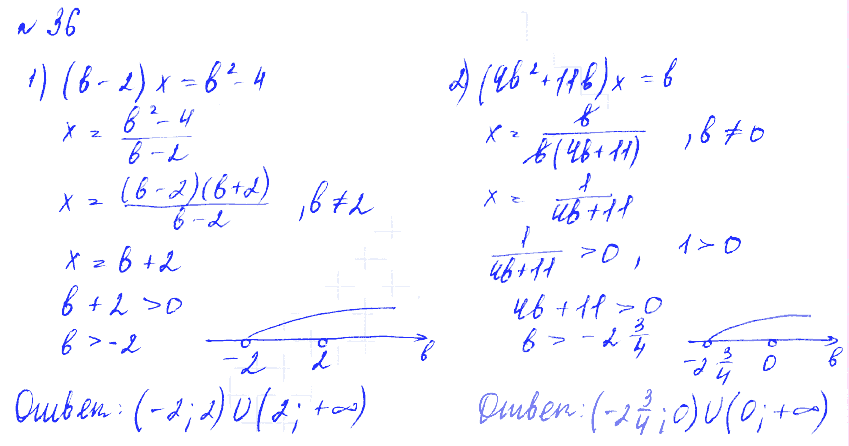 № 36
1) (b - 2) x = b² - 4
x = (b² - 4)/(b - 2)
x = ((b - 2)(b + 2))/(b - 2) , b ≠ 2
x = b + 2
b + 2 > 0
b > -2
-2 2 b
Ответ: (-2; 2) U (2; +∞)
2) (4b² + 11b) x = b
x = b/(b(4b + 11)) , b ≠ 0
x = 1/(4b + 11)
1/(4b + 11) > 0 , 1 > 0
4b + 11 > 0
b > -2 3/4
-2 3/4 0 b
Ответ: (-2 3/4; 0) U (0; +∞)